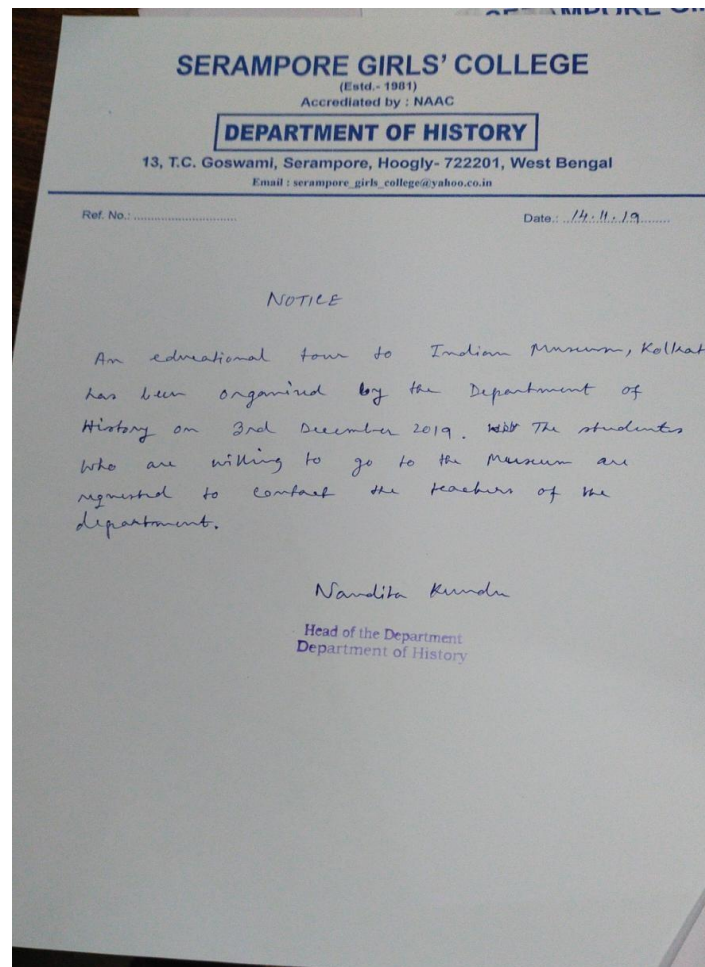 SERAMPORE GIRLS' COLLEGE
(Estd.- 1981)
Accrediated by : NAAC
DEPARTMENT OF HISTORY
13, T.C. Goswami, Serampore, Hoogly- 722201, West Bengal
Email : serampore_girls_college@yahoo.co.in
Ref. No.: ............................ Date.: 14.11.19
NOTICE
An educational tour to Indian Museum, Kolkat
has been organized by the Department of
History on 3rd December 2019. The students
who are willing to go to the Museum are
requested to contact the teachers of the
department.
Nandita Kundu
Head of the Department
Department of History